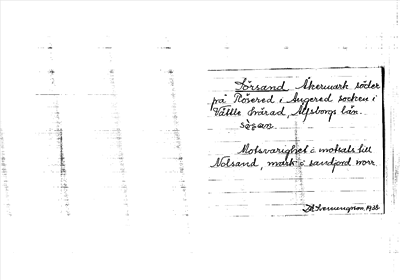 Sörsand Åkermark söder
på Rösered i Angered socken i
Vättle härad, Älfsborgs län.
Motsvarighet o motsats till
Nolsand, mark o sandjord norr.
1938